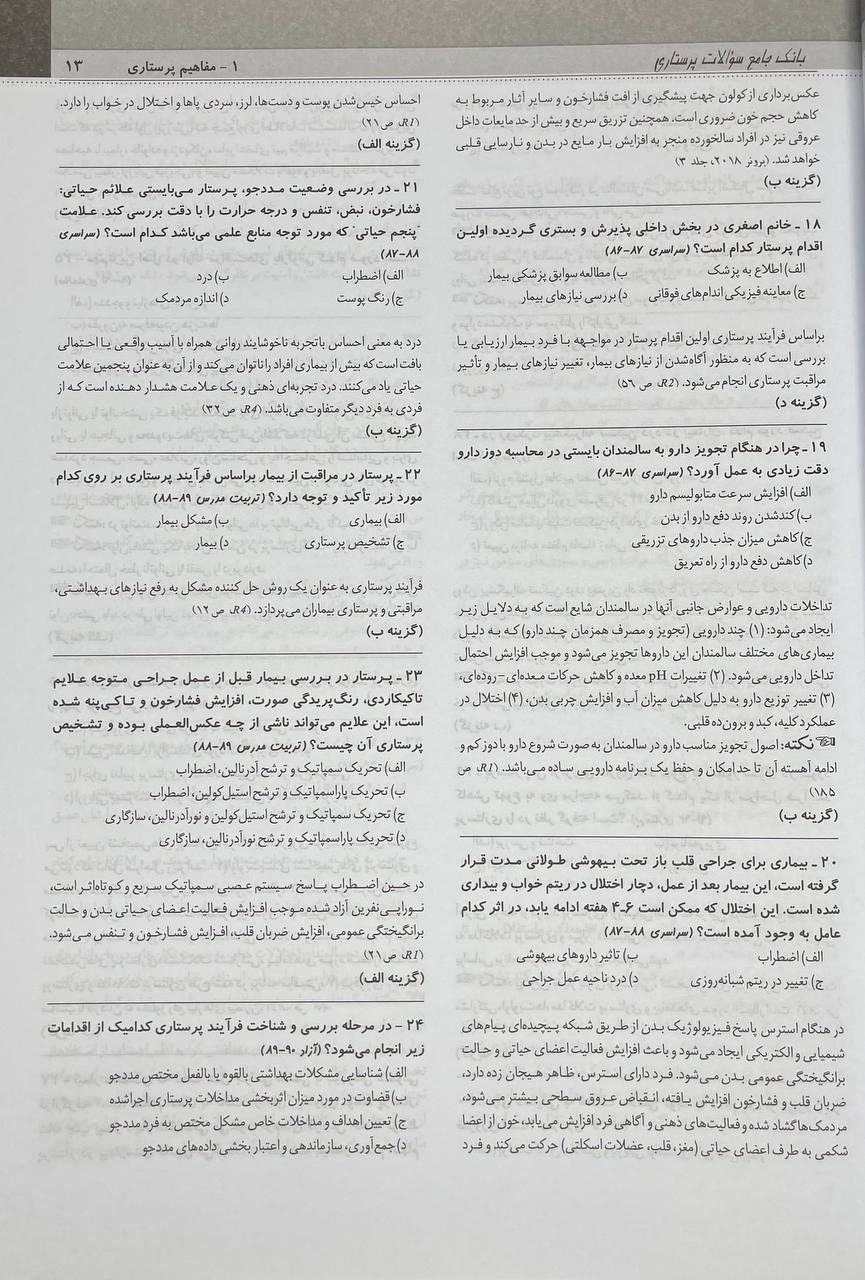 بانک جامع سؤالات پرستاری
۱ - مفاهیم پرستاری ۱۳
عکس‌برداری از کولون جهت پیشگیری از افت فشارخون و سایر آثار مربوط به
کاهش حجم خون ضروری است. همچنین تزریق سریع و بیش از حد مایعات داخل
عروقی نیز در افراد سالخورده منجر به افزایش بار مایع در بدن و نارسایی قلبی
خواهد شد. (برونر ۲۰۱۸، جلد ۳)
(گزینه ب)
۱۸ - خانم اصغری در بخش داخلی پذیرش و بستری گردیده اولین
اقدام پرستار کدام است؟ (سراسری ۸۷-۸۶)
الف) اطلاع به پزشک ب) مطالعه سوابق پزشکی بیمار
ج) معاینه فیزیکی اندام‌های فوقانی د) بررسی نیازهای بیمار
براساس فرآیند پرستاری اولین اقدام پرستار در مواجهه با فرد بیمار ارزیابی یا
بررسی است که به منظور آگاه‌شدن از نیازهای بیمار، تغییر نیازهای بیمار و تأثیر
مراقبت پرستاری انجام می‌شود. (R2، ص ۵۶)
(گزینه د)
۱۹ - چرا در هنگام تجویز دارو به سالمندان بایستی در محاسبه دوز دارو
دقت زیادی به عمل آورد؟ (سراسری ۸۷-۸۶)
الف) افزایش سرعت متابولیسم دارو
ب) کندشدن روند دفع دارو از بدن
ج) کاهش میزان جذب داروهای تزریقی
د) کاهش دفع دارو از راه تعریق
تداخلات دارویی و عوارض جانبی آنها در سالمندان شایع است که به دلایل زیر
ایجاد می‌شود: (۱) چند دارویی (تجویز و مصرف همزمان چند دارو) که به دلیل
بیماری‌های مختلف سالمندان این داروها تجویز می‌شود و موجب افزایش احتمال
تداخل دارویی می‌شود. (۲) تغییرات pH معده و کاهش حرکات معده‌ای-روده‌ای،
(۳) تغییر توزیع دارو به دلیل کاهش میزان آب و افزایش چربی بدن، (۴) اختلال در
عملکرد کلیه، کبد و برون‌ده قلبی.
نکته: اصول تجویز مناسب دارو در سالمندان به صورت شروع دارو با دوز کم و
ادامه آهسته آن تا حد امکان و حفظ یک برنامه دارویی ساده می‌باشد. (R1، ص
۱۸۵)
(گزینه ب)
۲۰ - بیماری برای جراحی قلب باز تحت بیهوشی طولانی مدت قرار
گرفته است، این بیمار بعد از عمل، دچار اختلال در ریتم خواب و بیداری
شده است. این اختلال که ممکن است ۶-۴ هفته ادامه یابد، در اثر کدام
عامل به وجود آمده است؟ (سراسری ۸۸-۸۷)
الف) اضطراب ب) تاثیر داروهای بیهوشی
ج) تغییر در ریتم شبانه‌روزی د) درد ناحیه عمل جراحی
در هنگام استرس پاسخ فیزیولوژیک بدن از طریق شبکه پیچیده‌ای پیام‌های
شیمیایی و الکتریکی ایجاد می‌شود و باعث افزایش فعالیت اعضای حیاتی و حالت
برانگیختگی عمومی بدن می‌شود. فرد دارای استرس، ظاهر هیجان زده دارد،
ضربان قلب و فشارخون افزایش یافته، انقباض عروق سطحی بیشتر می‌شود،
مردمک‌ها گشاد شده و فعالیت‌های ذهنی و آگاهی فرد افزایش می‌یابد، خون از اعضا
شکمی به طرف اعضای حیاتی (مغز، قلب، عضلات اسکلتی) حرکت می‌کند و فرد
احساس خیس‌شدن پوست و دست‌ها، لرز، سردی پاها و اختلال در خواب را دارد.
(R1، ص ۲۱)
(گزینه الف)
۲۱ - در بررسی وضعیت مددجو، پرستار می‌بایستی علائم حیاتی:
فشارخون، نبض، تنفس و درجه حرارت را با دقت بررسی کند. علامت
"پنجم حیاتی" که مورد توجه منابع علمی می‌باشد کدام است؟ (سراسری
۸۸-۸۷)
الف) اضطراب ب) درد
ج) رنگ پوست د) اندازه مردمک
درد به معنی احساس یا تجربه ناخوشایند روانی همراه با آسیب واقعی یا احتمالی
بافت است که بیش از بیماری افراد را ناتوان می‌کند و از آن به عنوان پنجمین علامت
حیاتی یاد می‌کنند. درد تجربه‌ای ذهنی و یک علامت هشدار دهنده است که از
فردی به فرد دیگر متفاوت می‌باشد. (R4، ص ۳۲)
(گزینه ب)
۲۲ - پرستار در مراقبت از بیمار براساس فرآیند پرستاری بر روی کدام
مورد زیر تأکید و توجه دارد؟ (تربیت مدرس ۸۹-۸۸)
الف) بیماری ب) مشکل بیمار
ج) تشخیص پرستاری د) بیمار
فرآیند پرستاری به عنوان یک روش حل کننده مشکل به رفع نیازهای بهداشتی،
مراقبتی و پرستاری بیماران می‌پردازد. (R4، ص ۱۲)
(گزینه ب)
۲۳ - پرستار در بررسی بیمار قبل از عمل جراحی متوجه علایم
تاکیکاردی، رنگ‌پریدگی صورت، افزایش فشارخون و تاکی‌پنه شده
است، این علایم می‌تواند ناشی از چه عکس‌العملی بوده و تشخیص
پرستاری آن چیست؟ (تربیت مدرس ۸۹-۸۸)
الف) تحریک سمپاتیک و ترشح آدرنالین، اضطراب
ب) تحریک پاراسمپاتیک و ترشح استیل‌کولین، اضطراب
ج) تحریک سمپاتیک و ترشح استیل‌کولین و نورآدرنالین، سازگاری
د) تحریک پاراسمپاتیک و ترشح نورآدرنالین، سازگاری
در حین اضطراب پاسخ سیستم عصبی سمپاتیک سریع و کوتاه‌اثر است،
نوراپی‌نفرین آزاد شده موجب افزایش فعالیت اعضای حیاتی بدن و حالت
برانگیختگی عمومی، افزایش ضربان قلب، افزایش فشارخون و تنفس می‌شود.
(R1، ص ۲۱)
(گزینه الف)
۲۴ - در مرحله بررسی و شناخت فرآیند پرستاری کدامیک از اقدامات
زیر انجام می‌شود؟ (آزاد ۹۰-۸۹)
الف) شناسایی مشکلات بهداشتی بالقوه یا بالفعل مختص مددجو
ب) قضاوت در مورد میزان اثربخشی مداخلات پرستاری اجراشده
ج) تعیین اهداف و مداخلات خاص مشکل مختص به فرد مددجو
د) جمع‌آوری، سازماندهی و اعتبار بخشی داده‌های مددجو